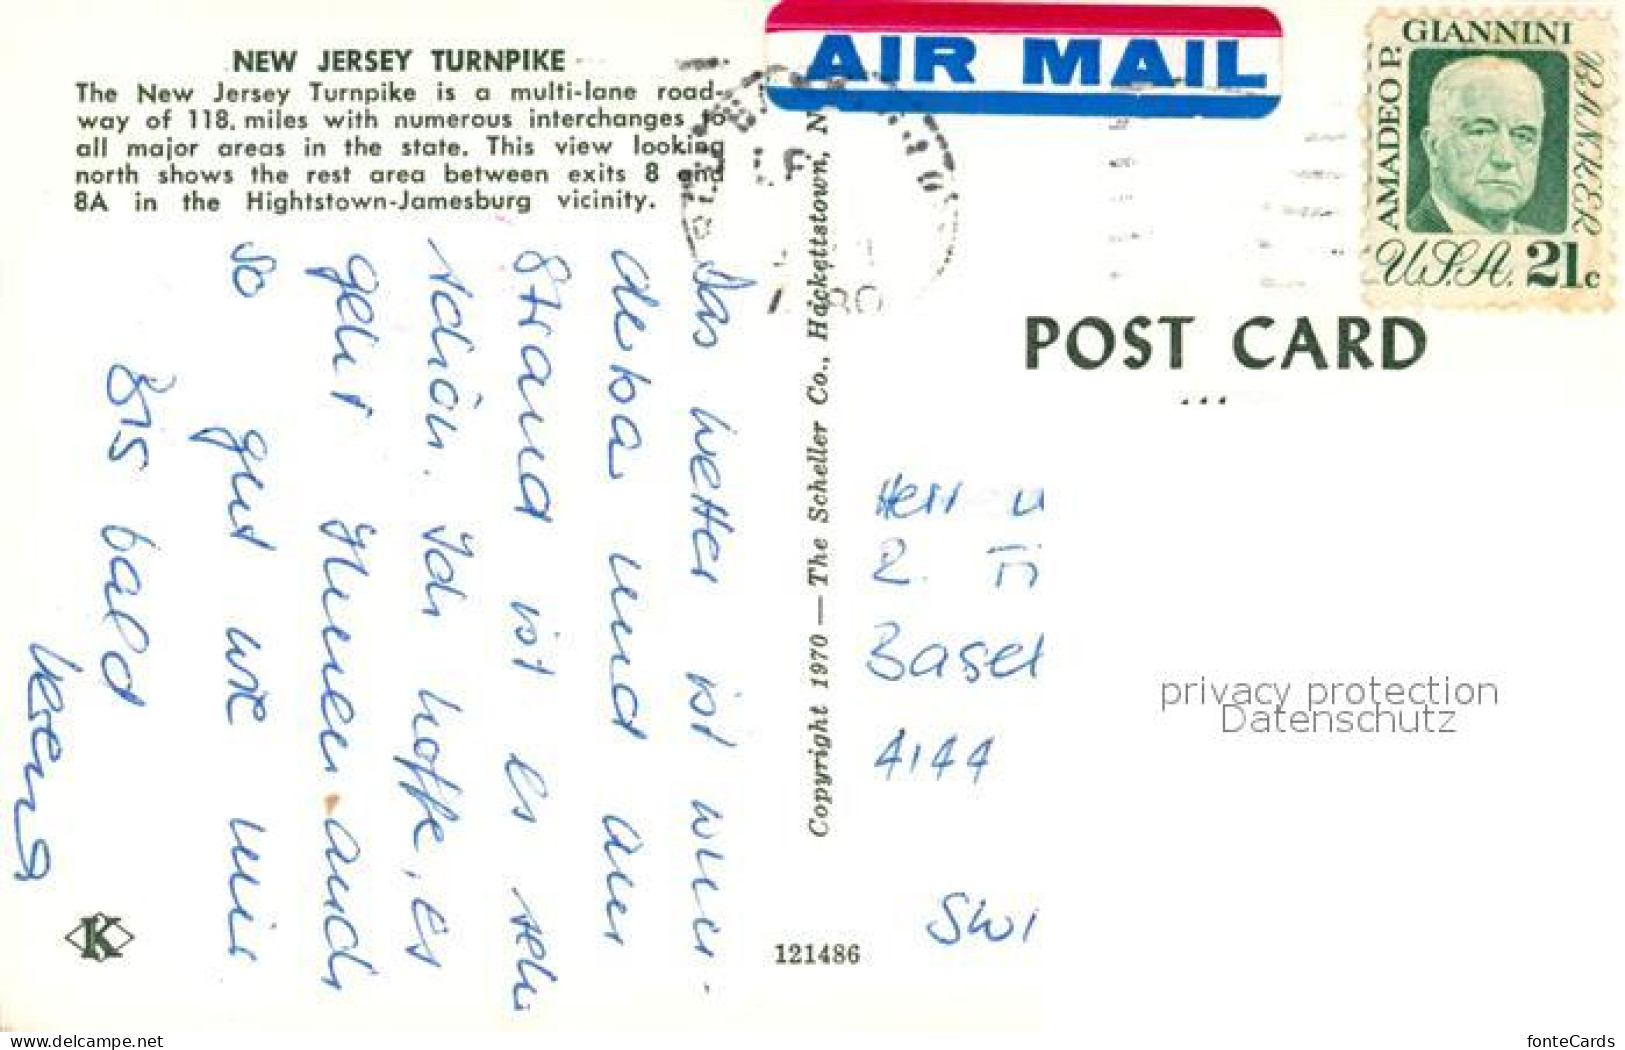 NEW JERSEY TURNPIKE
The New Jersey Turnpike is a multi-lane road-
way of 118. miles with numerous interchanges to
all major areas in the state. This view looking
north shows the rest area between exits 8 and
8A in the Hightstown-Jamesburg vicinity.
Das Wetter ist wun-
derbar und am
Strand ist es sehr
schön. Ich hoffe, es
geht Ihnen auch
so gut wie mir
Bis bald
K
Copyright 1970 — The Scheller Co., Hackettstown, N
121486
AIR MAIL
AMADEO P. GIANNINI BANKER
U.S.A. 21c
POST CARD
Herr u
R.
Basel
4144
SWI
privacy protection
Datenschutz
by oldthing.net
fonteCards